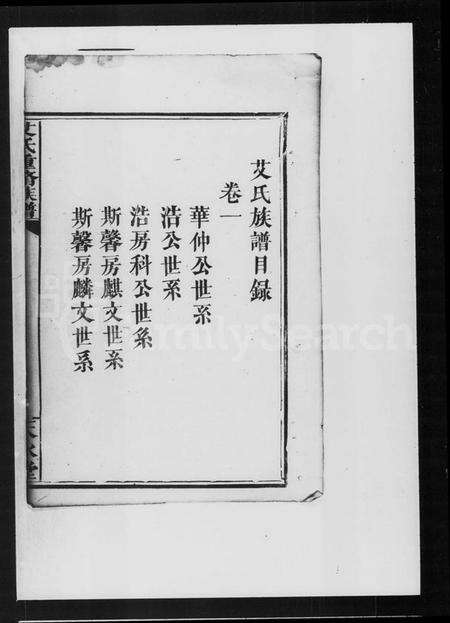 艾氏族譜目录
卷一
華仲公世系
浩公世系
浩房科公世系
斯馨房麒文世系
斯馨房麟文世系
艾氏重脩族譜
天水堂
FamilySearch